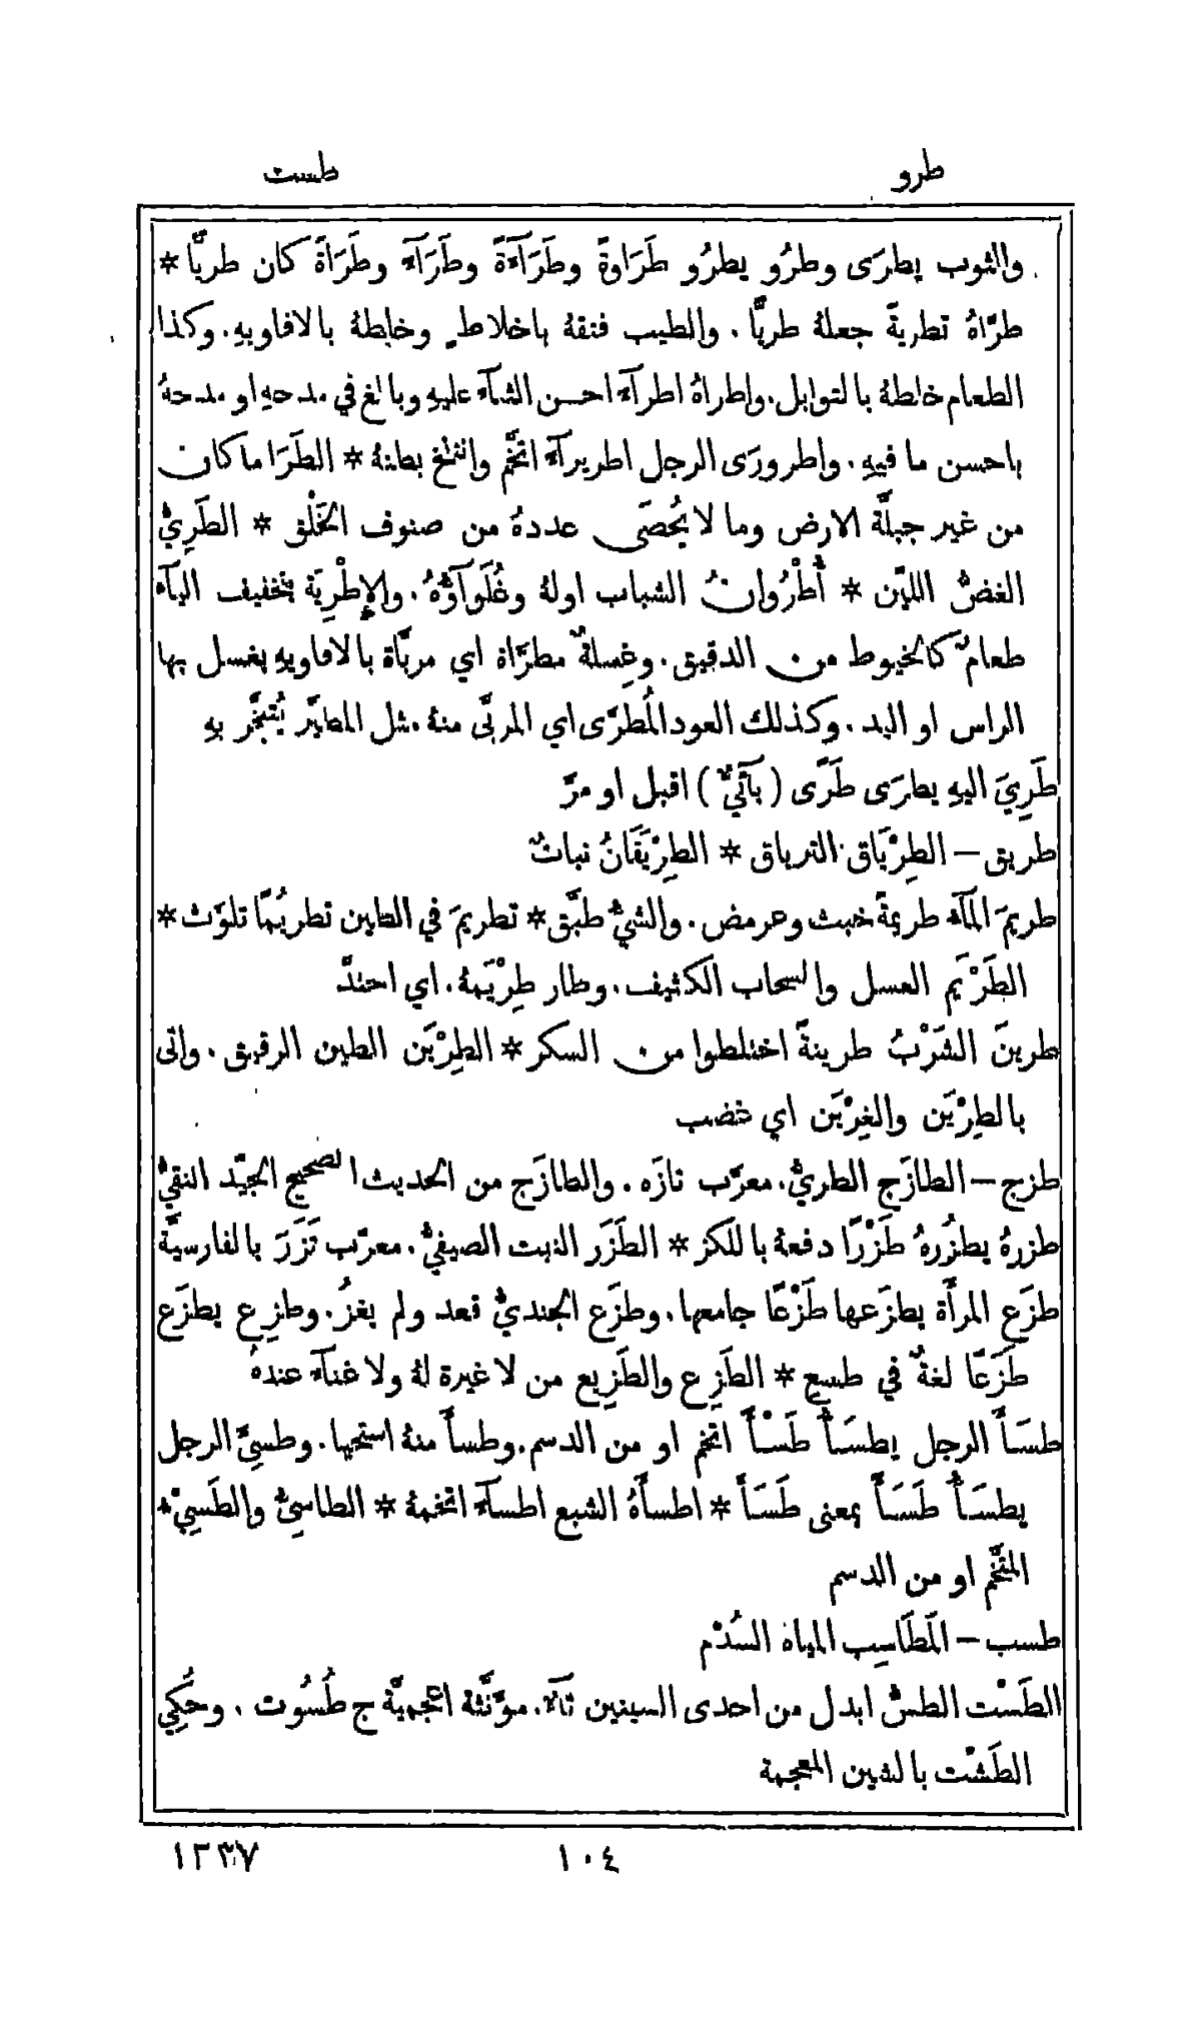 طرو
طست
والثوب يطرَى وطرُو يطرُو طَرَاوةً وطَرَآءَةً وطَرَآءً وطَرَاةً كان طريًّا *
طرّاهُ تطريةً جعلهُ طريًّا. والطيب فتقهُ باخلاطٍ وخلطهُ بالافاويهِ. وكذا
الطعام خلطهُ بالتوابل. واطراهُ اطرآءً احسن الثنآء عليهِ وبالغ في مدحهِ او مدحهُ
باحسن ما فيهِ. واطرورَى الرجل اطريرآءً اتَّخم وانتفخ بطنهُ * الطَرَا ما كان
من غير جبلَّة الارض وما لا يُحصَى عددهُ من صنوف الخَلْق * الطَرِيُّ
الغضّ الليّن * أُطْرُوانُ الشباب اولهُ وغُلَوَآؤُهُ. والإِطْرِيَة بتخفيف اليآء
طعامٌ كالخيوط من الدقيق. وغِسلةٌ مطرَّاة اي مربَّاة بالافاويهِ يغسل بها
الراس او اليد. وكذلك العود المُطرَّى اي المربَّى منهُ مثل المطيَّر يُتبخَّر بهِ
طَرِيَ اليهِ يطرَى طَرًى (يآئيٌّ) اقبل او مرَّ
طريق – الطِرْيَاق الترياق * الطِرْيَقَانُ نباتٌ
طريمَ المآء طريمةً خبث وعرمض. والشيُّ طبَّق * تطريمَ في الطين تطريُمًا تلوَّث *
الطَرْيَم العسل والسحاب الكثيف. وطار طِرْيَمهُ. اي احتدَّ
طرينَ الشَرْبُ طرينةً اختلطوا من السكر * الطِرْيَن الطين الرقيق. واتى
بالطِرْيَن والغِرْيَن اي غضب
طزج – الطازَج الطريّ. معرَّب تازَه. والطازَج من الحديث الصحيح الجيّد النقيّ
طزرهُ يطزُرهُ طَزْرًا دفعهُ باللكز * الطَزَر النبت الصيفيّ. معرَّب تَزَرَ بالفارسيَّة
طزَع المرأَة يطزَعها طَزْعًا جامعها. وطزَع الجنديّ قعد ولم يغزُ. وطزِع يطزَع
طَزَعًا لغةٌ في طسع * الطَزِع والطَزِيع من لا غيرة لهُ ولا غنآء عندهُ
طسَأَ الرجل يطسَأُ طَسْأً اتخم او من الدسم. وطسأَ منهُ استحيا. وطسِئَ الرجل
يطسَأُ طَسَأً بمعنى طَسَأَ * اطسأَهُ الشبع اطسآءً اتخمهُ * الطاسِئُ والطَسِيْءُ
المتَّخم او من الدسم
طسب – المَطَاسِب المياه السُدْم
الطَسْت الطسّ ابدل من احدى السينين تآءً. مؤَنَّثة اعجميَّة ج طُسُوت. وحُكِي
الطَشْت بالشين المعجمة
١٠٤
١٣٣٧